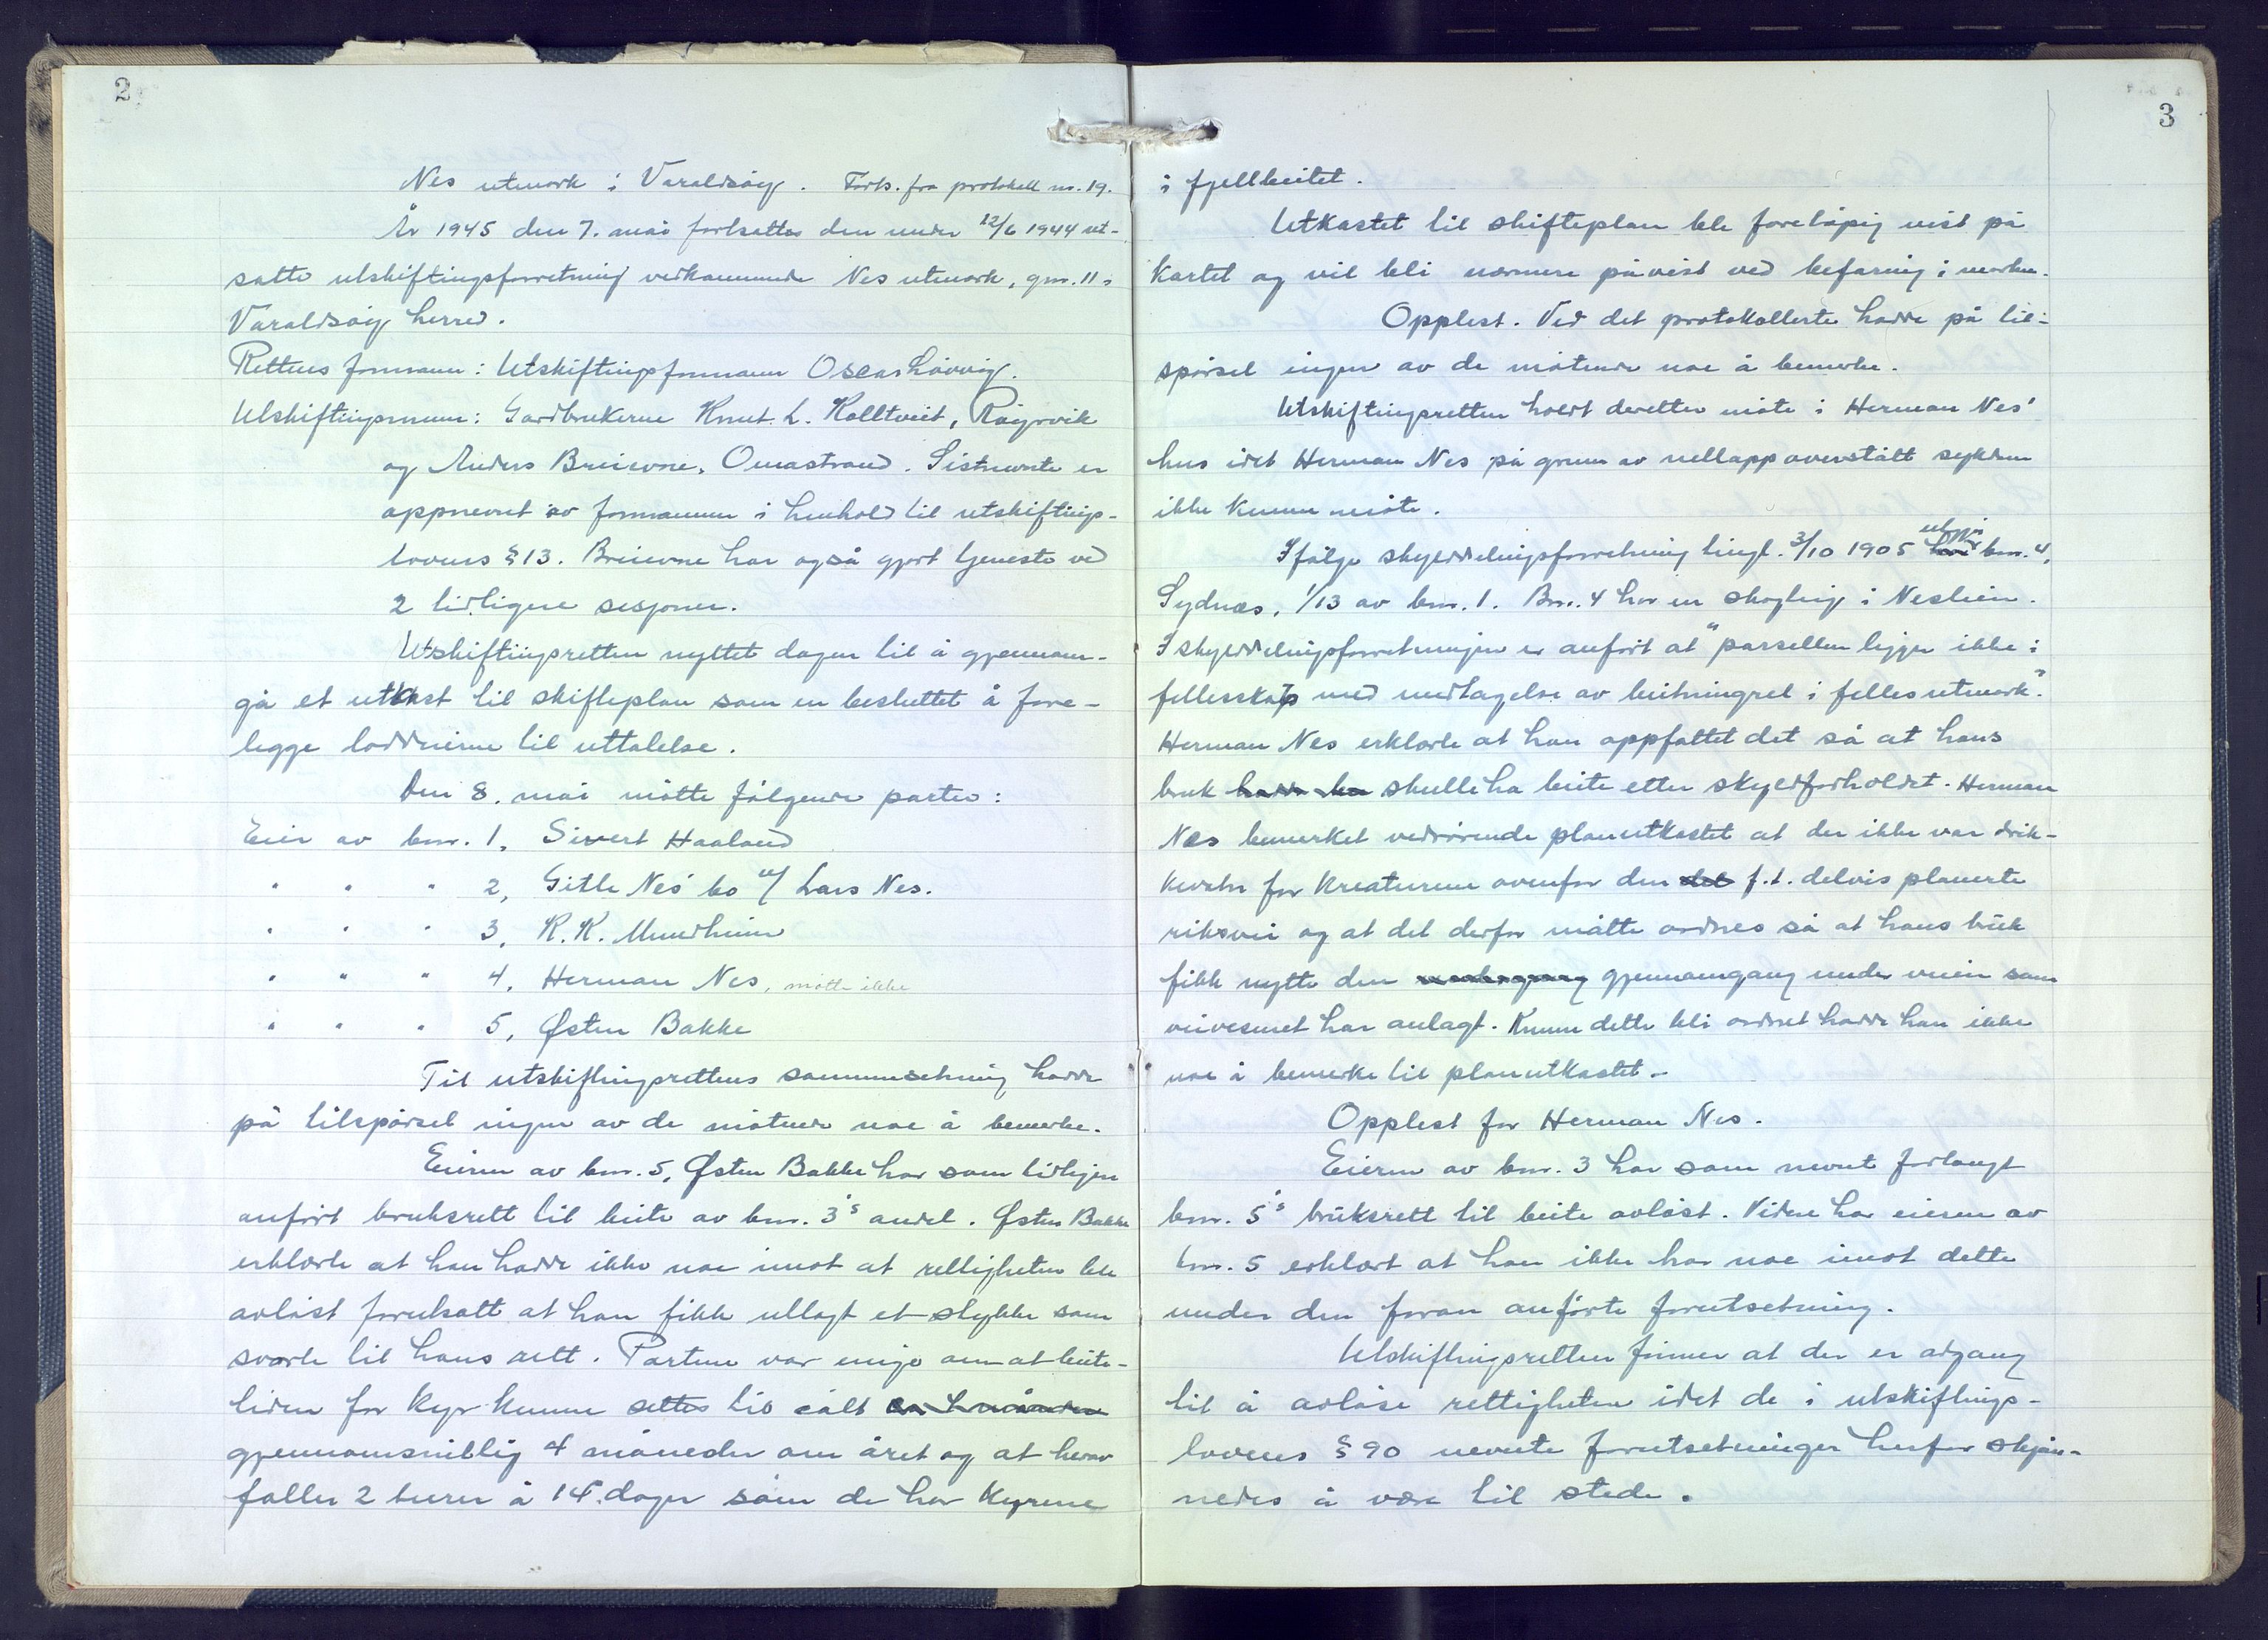 2
Nes utmark i Varaldsøy. Forts. fra protokoll nr. 19.
År 1945 den 7. mai fortsattes den under 12/6 1944 ut-
satte utskiftingsforretning vedkommende Nes utmark, gnr. 11 i
Varaldsøy herred.
Rettens formann: Utskiftingsformann Oscar Løvvig.
Utskiftingsmenn: Gardbrukerne Knut L. Holltveit, Røyrvik
og Anders Breievne, Omastrand. Sistnevnte er
oppnevnt av formannen i henhold til utskiftings-
lovens § 13. Breievne har også gjort tjeneste ved
2 tidligere sesjoner.
Utskiftingsretten nyttet dagen til å gjennom-
gå et utkast til skifteplan som en besluttet å fore-
legge loddeierne til uttalelse.
Den 8. mai møtte følgende parter:
Eier av bnr. 1, Sivert Haaland
" " " 2, Gitle Nes' bo v/ Lars Nes.
" " " 3, K. K. Mundheim
" " " 4, Herman Nes, møtte ikke
" " " 5, Østen Bakke
Til utskiftingsrettens sammensetning hadde
på tilspørsel ingen av de møtende noe å bemerke.
Eieren av bnr. 5, Østen Bakke har som tidligere
anført bruksrett til beite av bnr. 3's andel. Østen Bakke
erklærte at han hadde ikke noe imot at rettigheten ble
avløst forutsatt at han fikk utlagt et stykke som
svarte til hans rett. Partene var enige om at beite-
tiden for kyr kunne settes til i alt
gjennomsnittlig 4 måneder om året og at herav
faller 2 turer à 14 dager som de har kyrene
3
i fjellbeitet.
Utkastet til skifteplan ble foreløpig vist på
kartet og vil bli nærmere påvist ved befaring i marken.
Opplest. Ved det protokollerte hadde på til-
spørsel ingen av de møtende noe å bemerke.
Utskiftingsretten holdt deretter møte i Herman Nes'
hus idet Herman Nes på grunn av nettopp overstått sykdom
ikke kunne møte.
Ifølge skylddelingsforretning tingl. 3/10 1905 utgjør bnr. 4,
Sydnes, 1/13 av bnr. 1. Bnr. 4 har en skogteig i Neslien.
I skylddelingsforretningen er anført at "parsellen ligger ikke i
fellesskap med undtagelse av beitningret i felles utmark".
Herman Nes erklærte at han oppfattet det så at hans
bruk hadde ha skulle ha beite etter skyldforholdet. Herman
Nes bemerket vedrørende planutkastet at der ikke var drik-
kevatn for kreaturene ovenfor den det f.t. delvis planerte
riksvei og at det derfor måtte ordnes så at hans bruk
fikk nytte den undergang gjennomgang under veien som
veivesenet har anlagt. Kunne dette bli ordnet hadde han ikke
noe å bemerke til planutkastet.
Opplest for Herman Nes.
Eieren av bnr. 3 har som nevnt forlangt
bnr. 5's bruksrett til beite avløst. Videre har eieren av
bnr. 5 erklært at han ikke har noe imot dette
under den foran anførte forutsetning.
Utskiftingsretten finner at der er adgang
til å avløse rettigheten idet de i utskiftings-
lovens § 90 nevnte forutsetninger herfor skjøn-
nedes å være til stede.